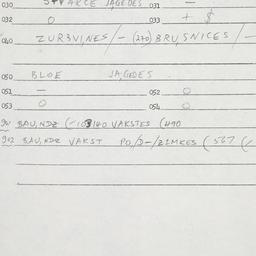 030 JAGEDES 031 —
032 O 033 + $
040 ZURBVINES/- (270) BRUSNICES/-
050 BLOE JAGEDES
051 — 052 O
053 O 054 O
BAU,NDZ 140 VAKSTES (490
912 BAU,NDZ VAKST PO/D-/ZIMKES (567 (-